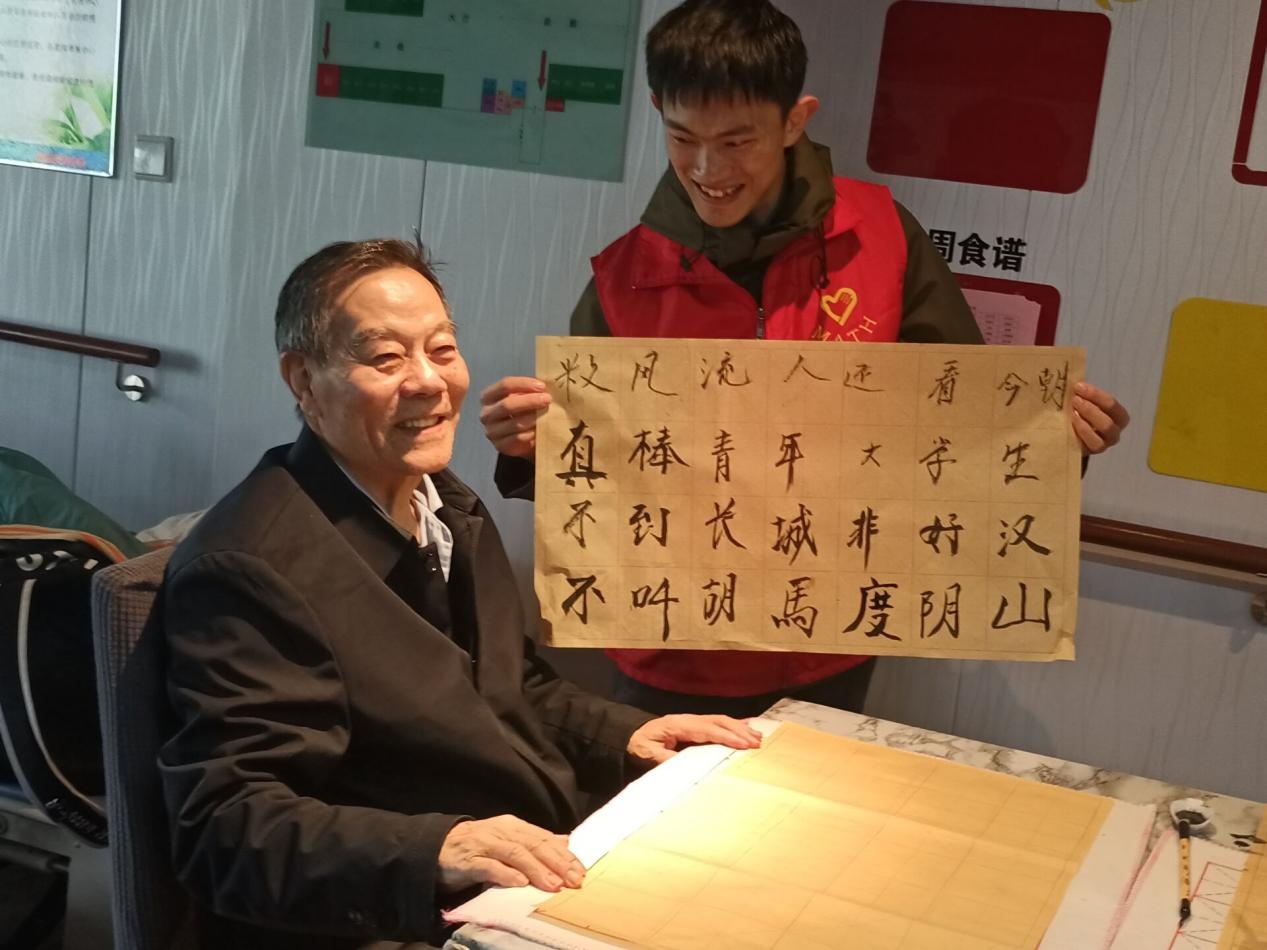 大厅
周食谱
MATH
数风流人还看今朝
真棒青年大学生
不到长城非好汉
不叫胡馬度阴山